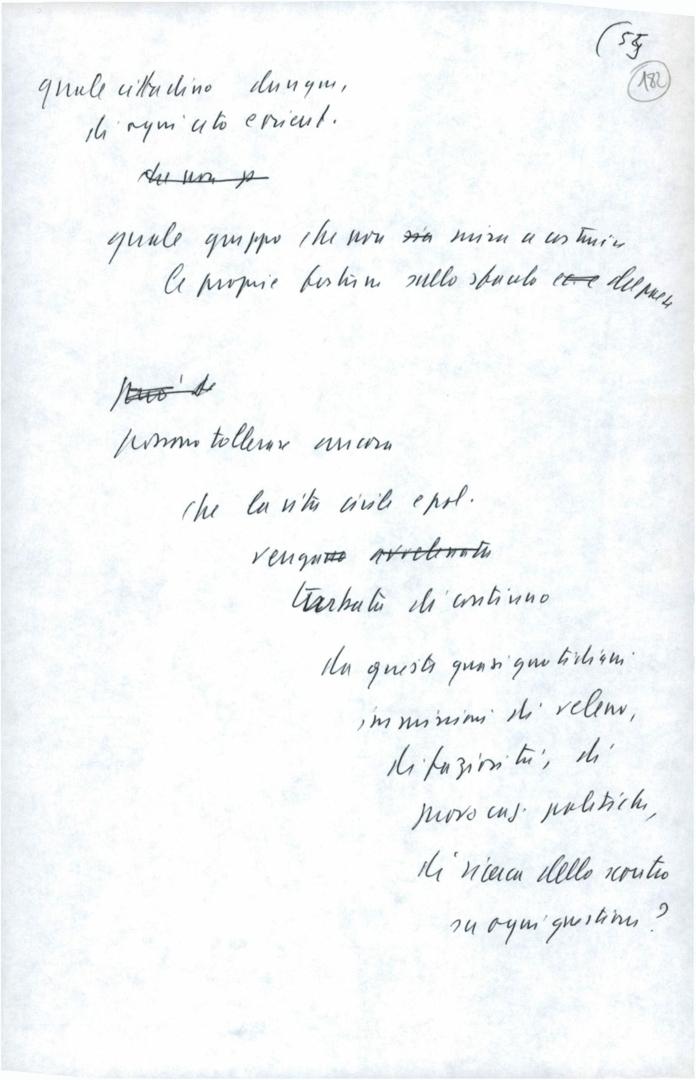 (55
182
quale cittadino dunque,
di ogni ceto e orient.
che non p
quale gruppo che non sia mira a costruire
le proprie fortune sullo sfacelo del paese
può se
possono tollerare ancora
che la vita civile e pol.
venga avvelenata
turbata di continuo
da queste quasi quotidiane
immissioni di veleno,
di faziosità, di
provocaz. politiche,
di ricerca dello scontro
su ogni questione?